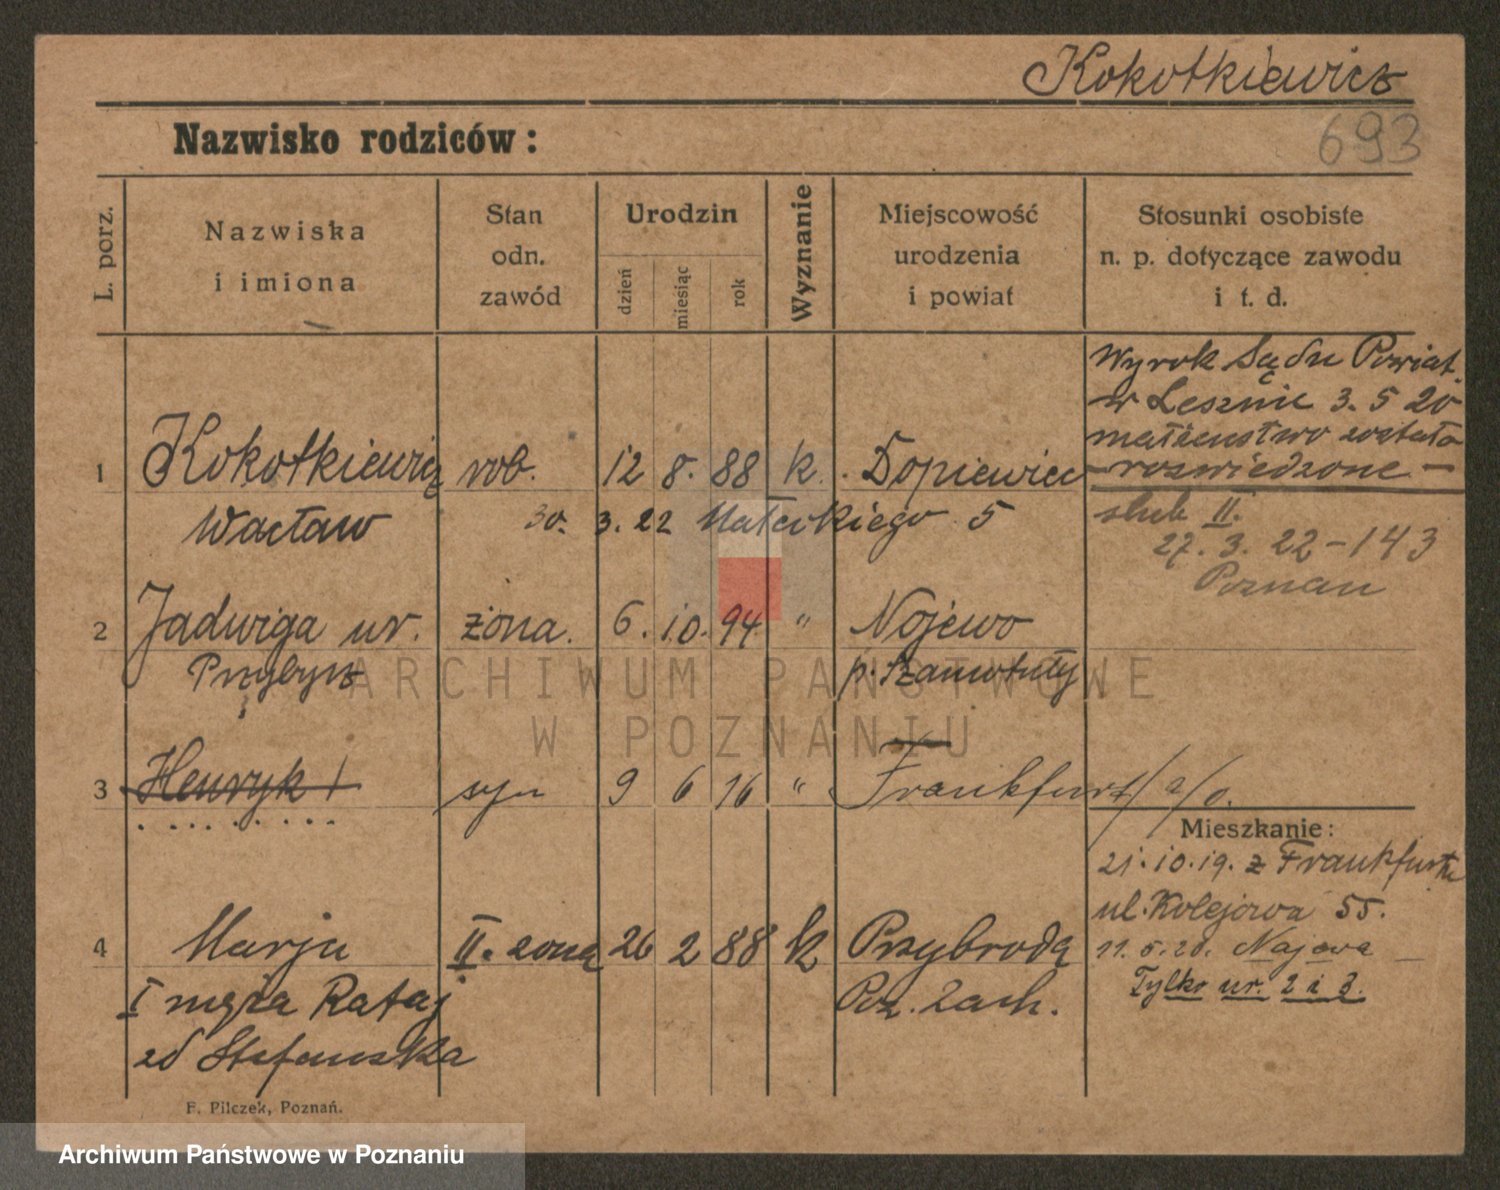 Kokotkiewicz
693
Nazwisko rodziców:
L. porz.
Nazwiska
i imiona
Stan
odn.
zawód
Urodzin
dzień
miesiąc
rok
Wyznanie
Miejscowość
urodzenia
i powiat
Stosunki osobiste
n. p. dotyczące zawodu
i t. d.
Wyrok Sądu Powiat.
w Lesznie 3. 5 20
małżeństwo zostało
- rozwiedzone -
1 Kokotkiewicz rob. 12 8. 88 k. Dopiewiec
Wacław 30. 3. 22 Małeckiego 5
slub II.
27. 3. 22 - 143
Poznan
2 Jadwiga ur. żona. 6. 10. 94 " Nojewo
Przybysz p. Szamotuły
3 Henryk syn 9 6 16 " Frankfurt/a/O.
Mieszkanie:
21. 10. 19. z Frankfurtu
ul. Kolejowa 55.
11. 5. 20. Najewa
Tylko nr. 2 i 3.
4 Marja II. żona 26 2 88 k Przybroda
I męża Rataj Poz. Zach.
zd Stefanska
F. Pilczek, Poznań.
ARCHIWUM PAŃSTWOWE
W POZNANIU
Archiwum Państwowe w Poznaniu